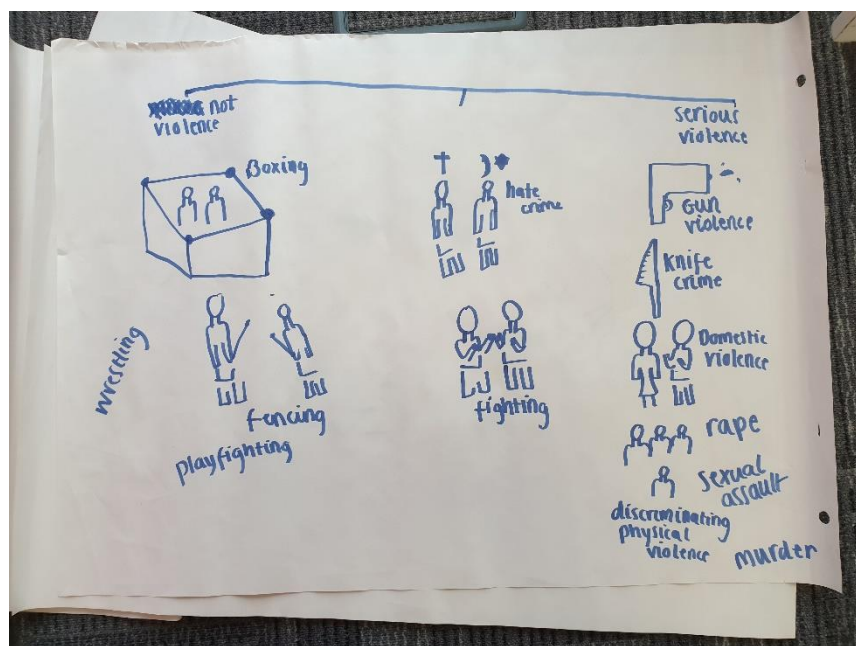 not
violence
serious
violence
Boxing
hate
crime
Gun
violence
knife
crime
wrestling
fencing
playfighting
fighting
Domestic
violence
rape
sexual
assault
discriminating
physical
violence
murder